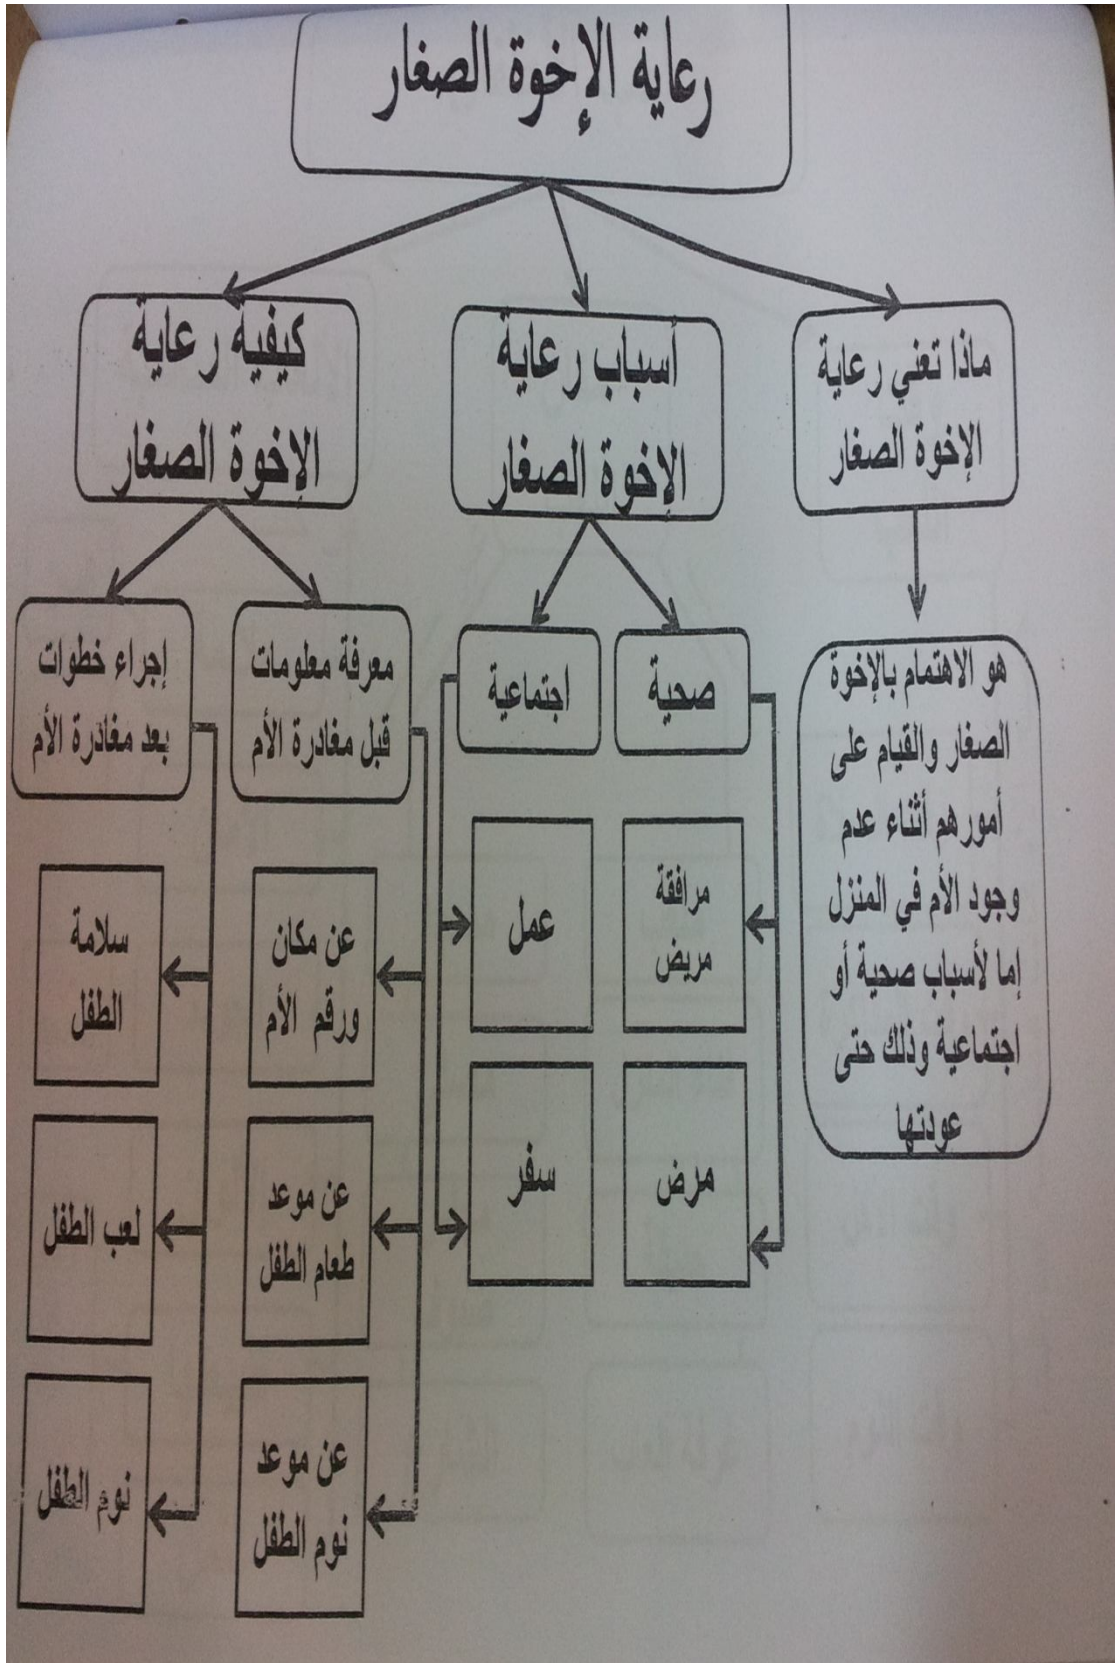 رعاية الإخوة الصغار
ماذا تعني رعاية
الإخوة الصغار
أسباب رعاية
الإخوة الصغار
كيفية رعاية
الإخوة الصغار
هو الاهتمام بالإخوة
الصغار والقيام على
أمورهم أثناء عدم
وجود الأم في المنزل
إما لأسباب صحية أو
اجتماعية وذلك حتى
عودتها
صحية
اجتماعية
معرفة معلومات
قبل مغادرة الأم
إجراء خطوات
بعد مغادرة الأم
مرافقة
مريض
مرض
عمل
سفر
عن مكان
ورقم الأم
عن موعد
طعام الطفل
عن موعد
نوم الطفل
سلامة
الطفل
لعب الطفل
نوم الطفل